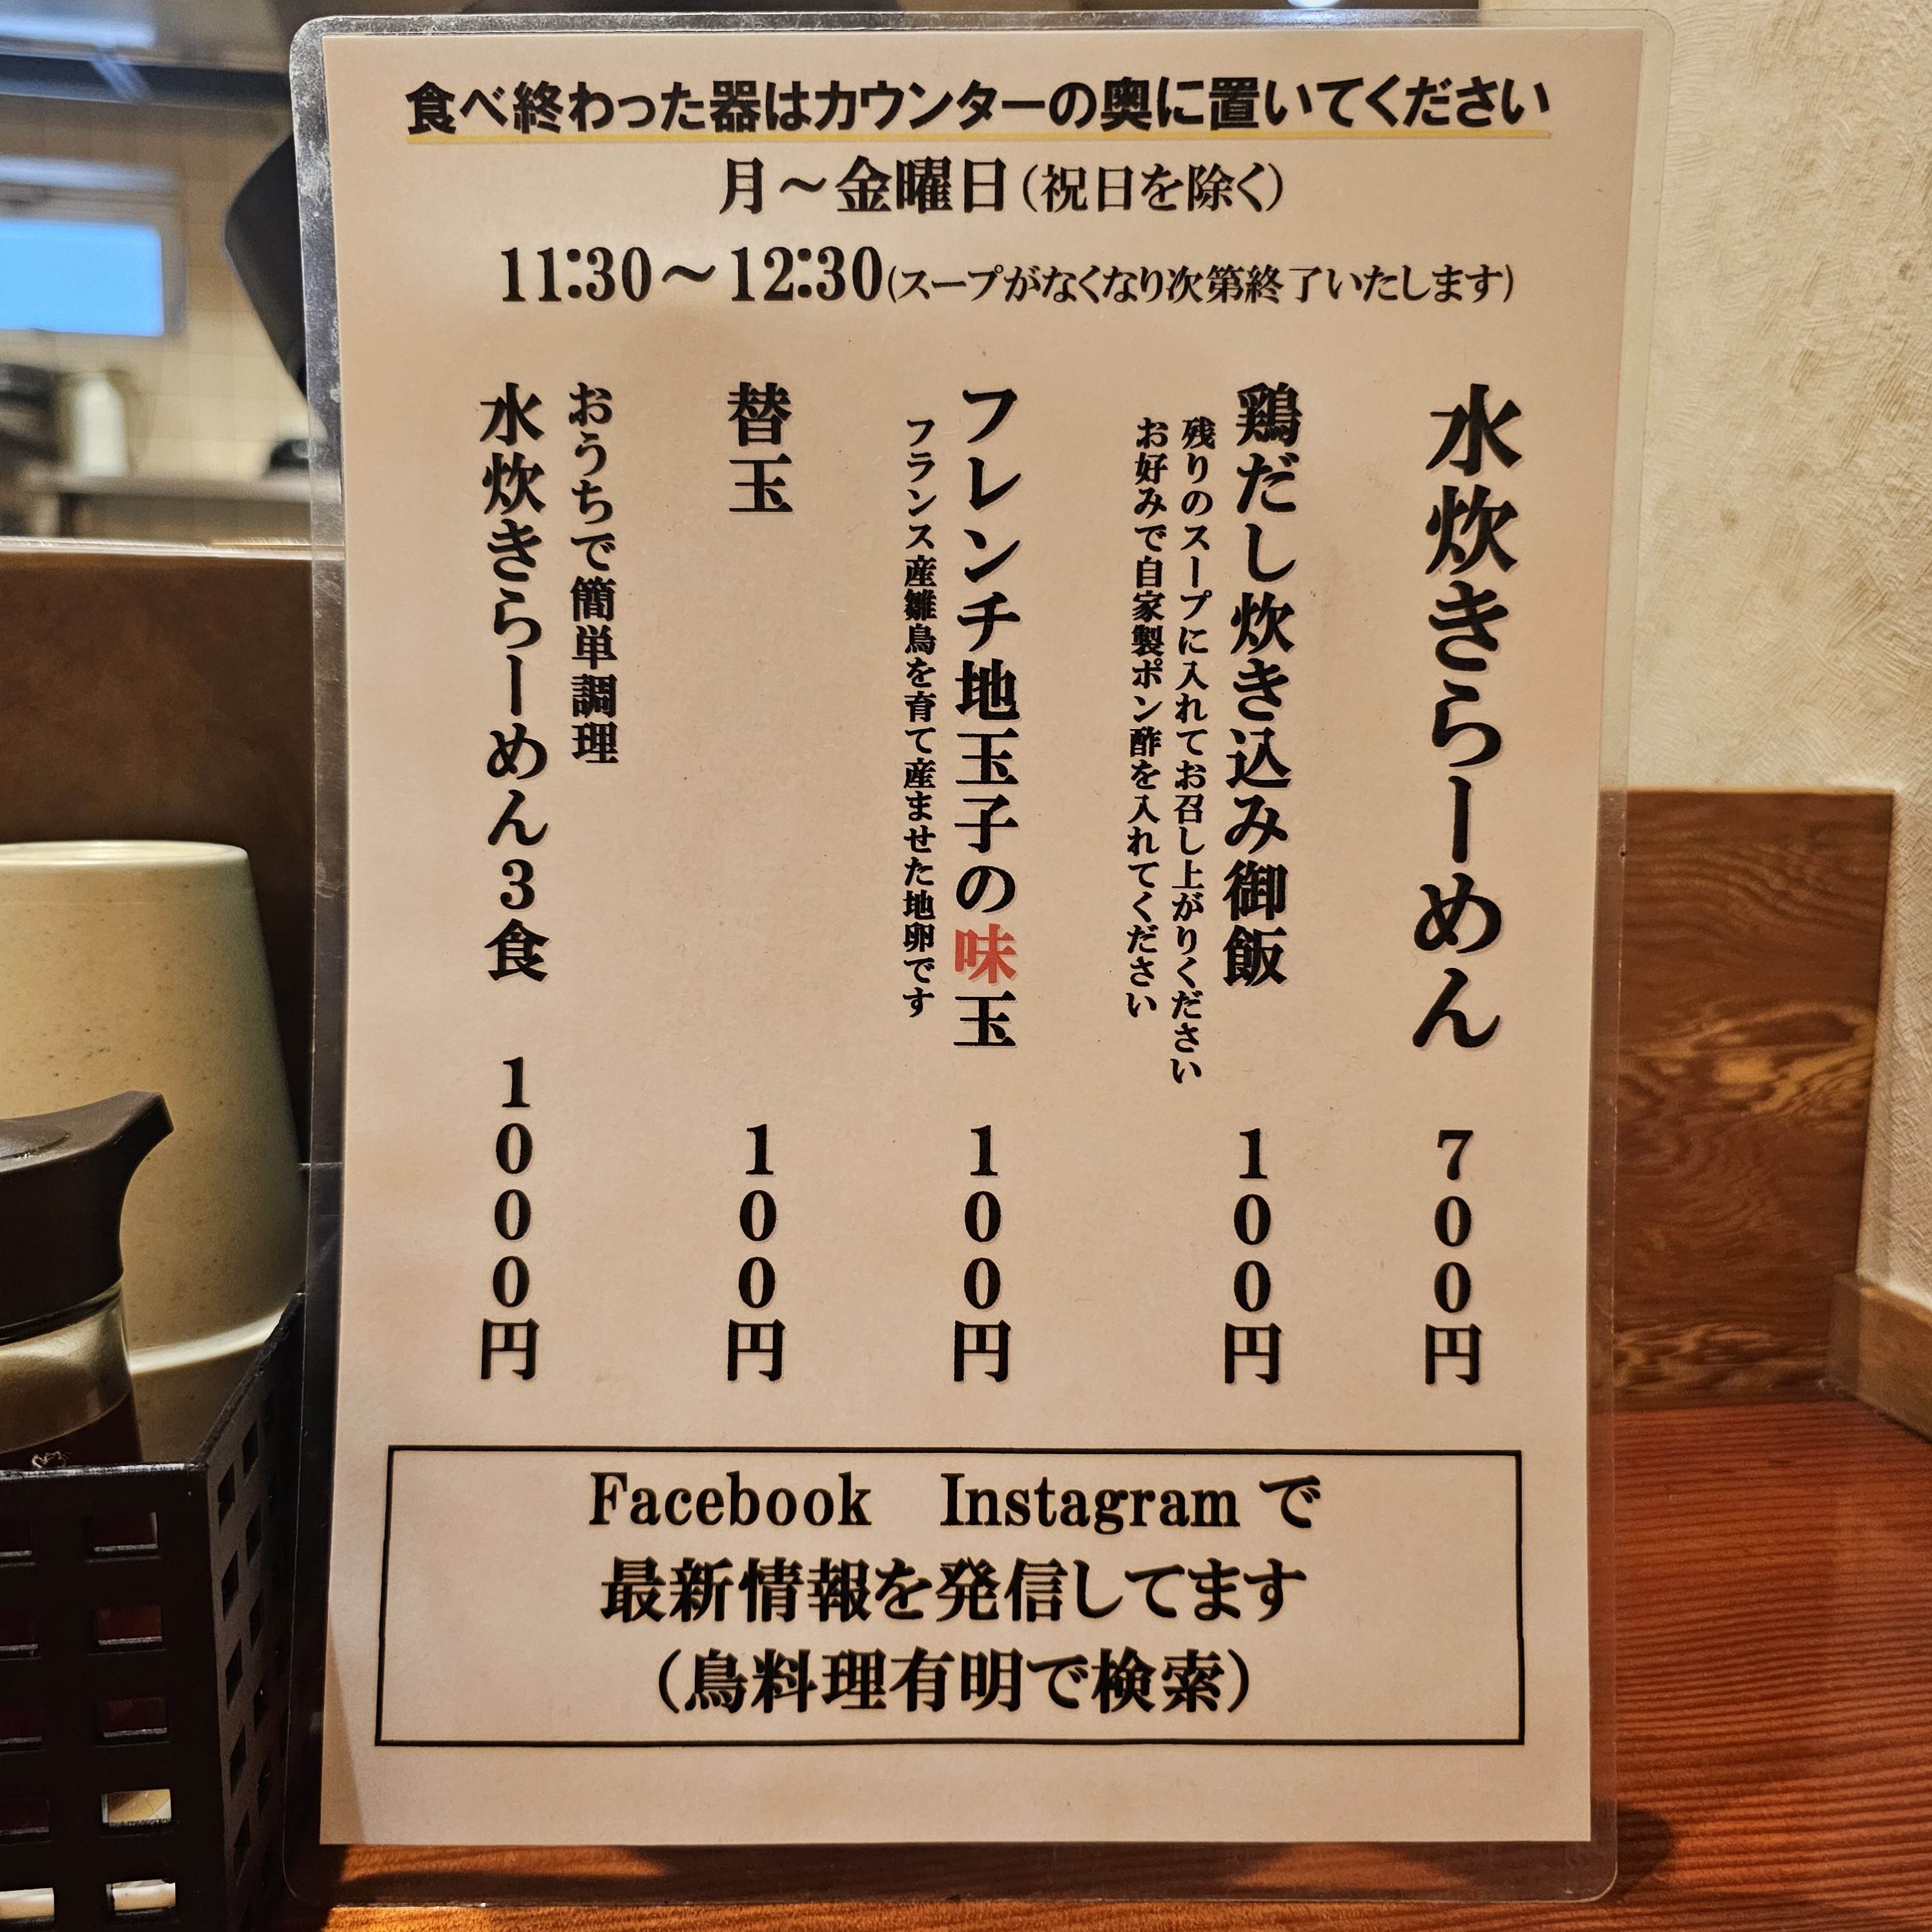 食べ終わった器はカウンターの奥に置いてください
月～金曜日(祝日を除く)
11:30～12:30(スープがなくなり次第終了いたします)
水炊きらーめん 700円
鶏だし炊き込み御飯 100円
残りのスープに入れてお召し上がりください
お好みで自家製ポン酢を入れてください
フレンチ地玉子の味玉 100円
フランス産雛鳥を育て産ませた地卵です
替玉 100円
おうちで簡単調理
水炊きらーめん3食 1000円
Facebook Instagramで
最新情報を発信してます
(鳥料理有明で検索)